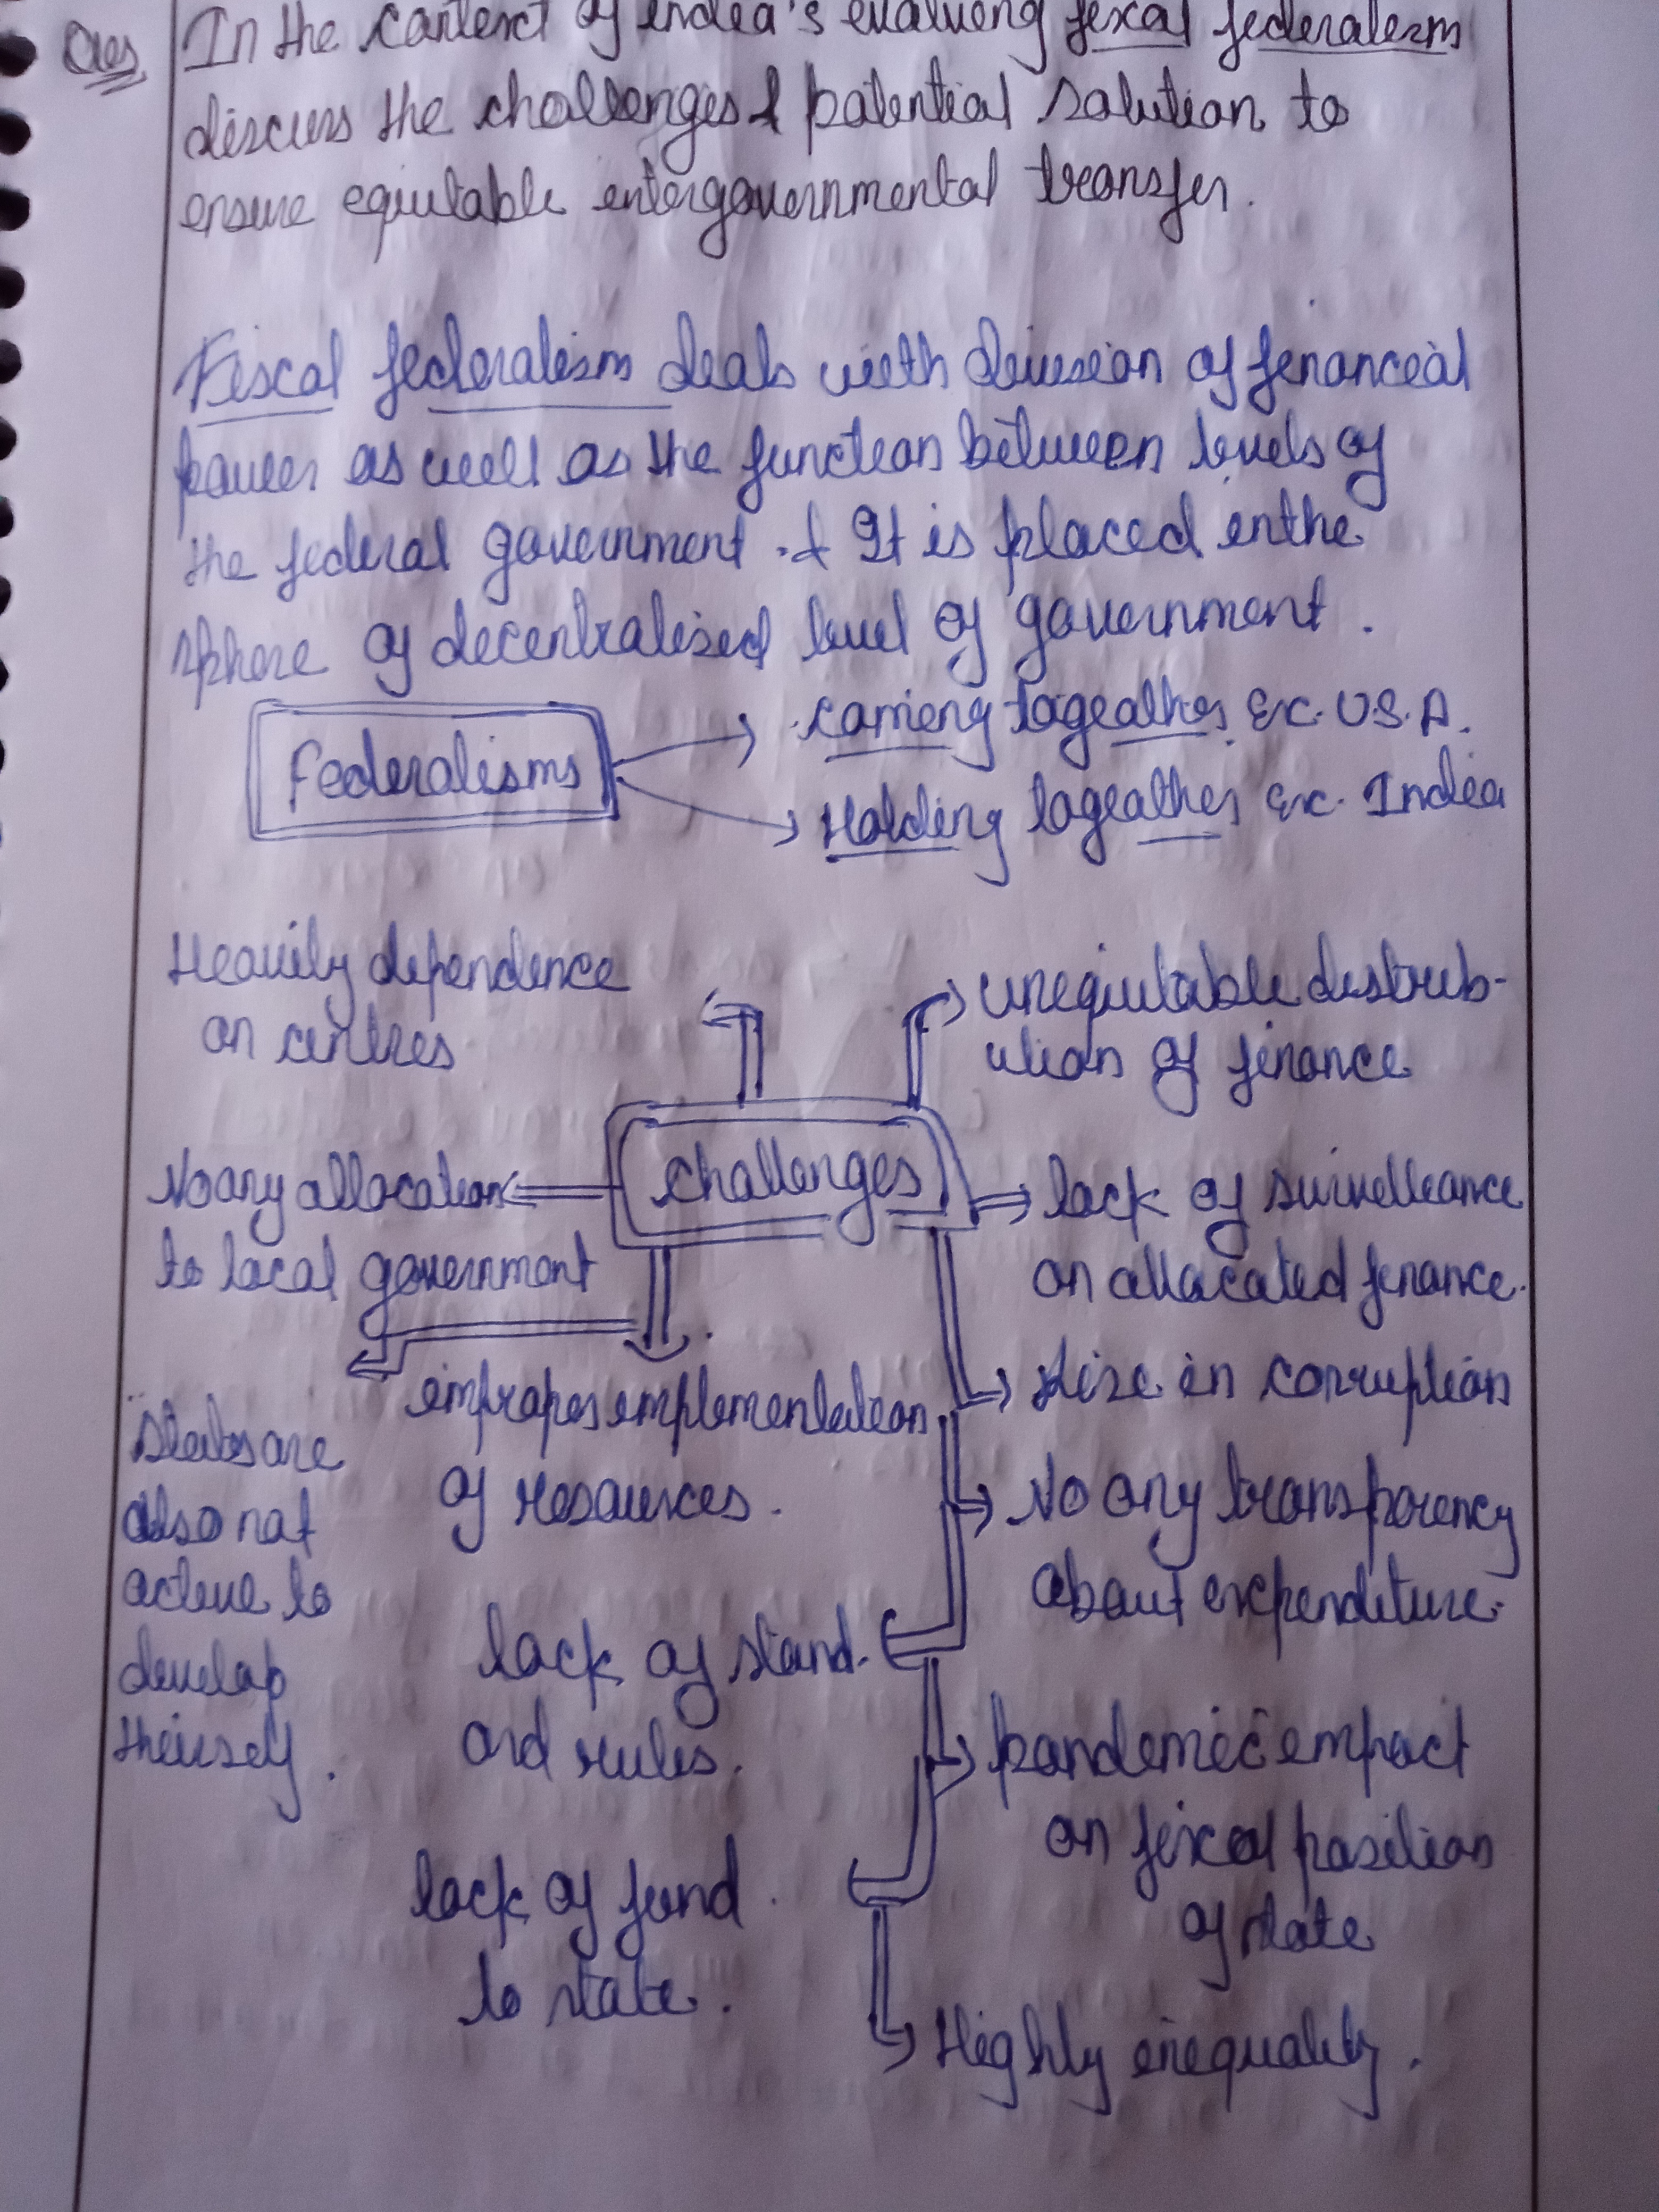 Ques In the context of India's evaluving fiscal federalism
discuss the challenges & potential solution to
ensure equitable intergovernmental transfer.
Fiscal federalism deals with division of financial
power as well as the function between levels of
the federal government. & It is placed in the
sphere of decentralised level of government.
Federalisms
coming togeather Ex. U.S.A.
Holding togeather Ex. India
Heavily dependence
on centres
unequitable distrib-
ution of finance
challenges
No any allocation
to local government
lack of survelleance
on allocated finance.
improper implementation
of resources.
Rise in corruption
States are
also not
active to
develop
theirself.
No any transparency
about expenditure.
lack of stand-
ard rules.
pandemic impact
on fiscal position
of state
lack of fund
to state.
Highly inequality.